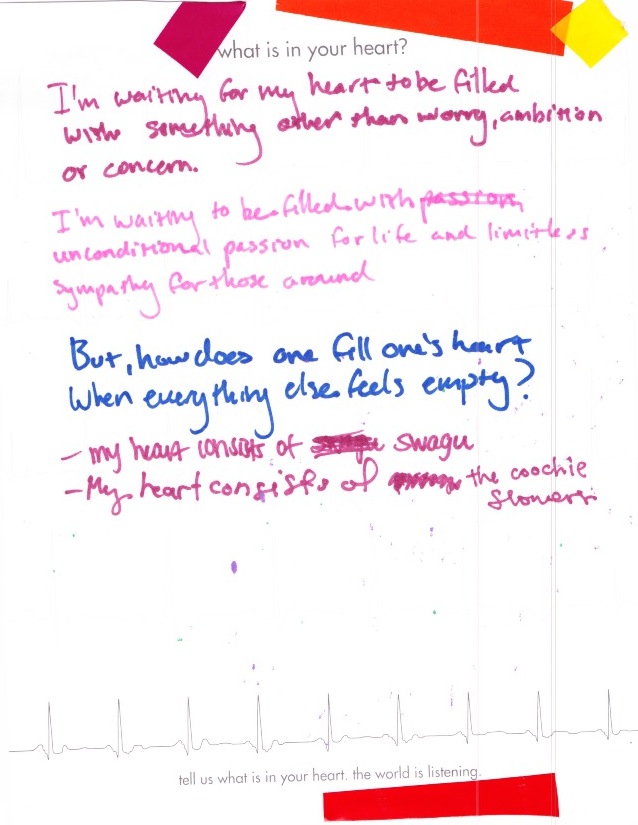 what is in your heart?
I'm waiting for my heart to be filled
with something other than worry, ambition
or concern.
I'm waiting to be filled with passion,
unconditional passion for life and limitless
sympathy for those around
But, how does one fill one's heart
when everything else feels empty?
- my heart consists of swagu
- My heart consists of the coochie
tell us what is in your heart. the world is listening.